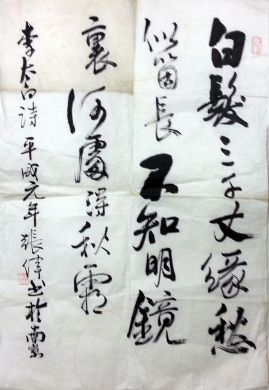 白髮三千丈緣愁
似箇長不知明鏡
裏何處得秋霜
李太白詩平成元年張偉書於南京